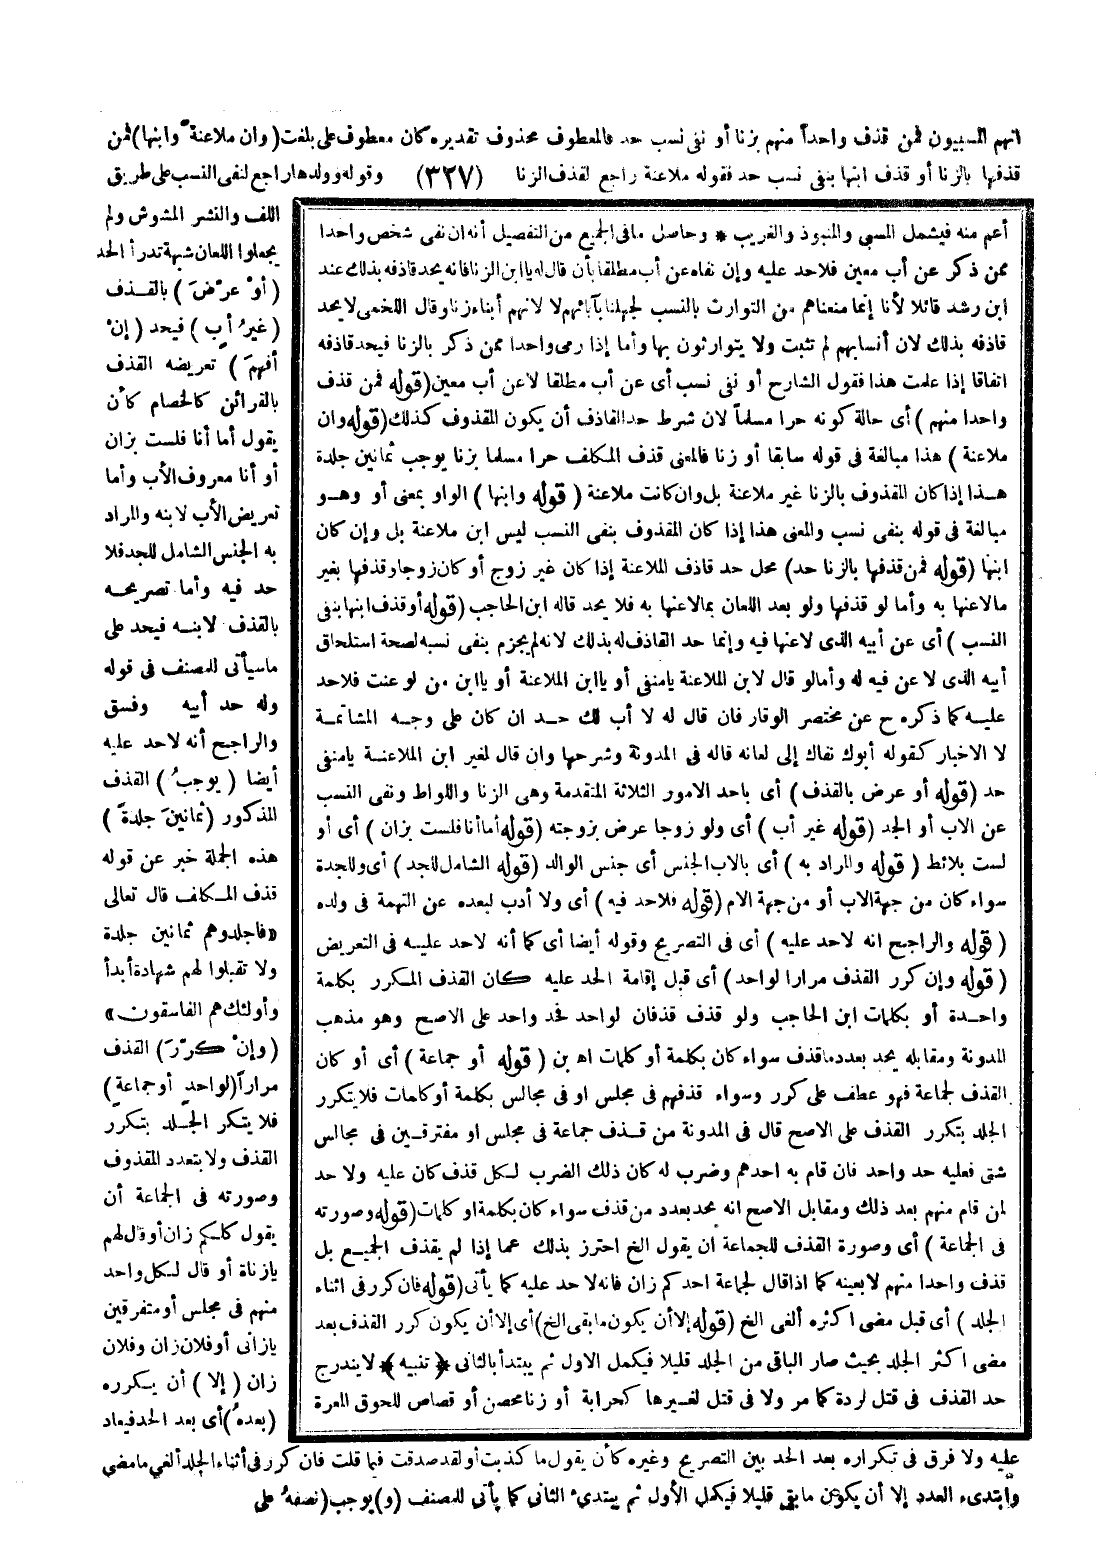 انهم المسبيون فمن قذف واحداً منهم بزنا أو نفى نسب حد فالمعطوف محذوف تقديره كان معطوف على بلغت (وان ملاعنة وابنها) فمن
قذفها بالزنا أو قذف ابنها بنفى نسب حد فقوله ملاعنة راجع لقذف الزنا (٣٢٧) وقوله وولدها راجع لنفى النسب على طريق
اللف والنشر المشوش ولم
يجعلوا اللعان شبهة تدرأ الحد
(أوْ عرّضَ) بالقذف
(غيرُ أبٍ) فيحد (إنْ
أفهمَ) تعريضه القذف
بالقرائن كالخصام كأن
يقول أما أنا فلست بزان
أو أنا معروف الأب وأما
تعريض الأب لابنه والمراد
به الجنس الشامل للجد فلا
حد فيه وأما تصريحه
بالقذف لابنه فيحد على
ماسيأتى للمصنف فى قوله
وله حد أبيه وفسق
والراجح أنه لاحد عليه
أيضا (يوجبُ) القذف
المذكور (ثمانينَ جلدةً)
هذه الجملة خبر عن قوله
قذف المكلف قال تعالى
«فاجلدوهم ثمانين جلدة
ولا تقبلوا لهم شهادة أبدأ
وأولئك هم الفاسقون»
(وإنْ كرّرَ) القذف
مراراً (لواحدٍ أو جماعةٍ)
فلا يتكر الجلد بتكرر
القذف ولا بتعدد المقذوف
وصورته فى الجماعة أن
يقول كلكم زان أو قال لهم
يازناة أو قال لكل واحد
منهم فى مجلس أو متفرقين
يازانى أو فلان زان وفلان
زان (إلا) أن يكرره
(بعدهُ) أى بعد الحد فيعاد
أعم منه فيشمل المسبى والمنبوذ والغريب * وحاصل مافى الجميع من التفصيل أنه ان نفى شخص واحدا
ممن ذكر عن أب معين فلاحد عليه وإن نفاه عن أب مطلقا بأن قال له يا ابن الزنا فانه يحد قاذفه بذلك عند
ابن رشد قائلا لأنا إنما منعناهم من التوارث بالنسب لجهلنا بآبائهم لا لانهم أبناء زنا وقال اللخمى لا يحد
قاذفه بذلك لان أنسابهم لم تثبت ولا يتوارثون بها وأما إذا رمى واحدا ممن ذكر بالزنا فيحد قاذفه
اتفاقا إذا علمت هذا فقول الشارح أو نفى نسب أى عن أب مطلقا لاعن أب معين (قوله فمن قذف
واحدا منهم) أى حالة كونه حرا مسلماً لان شرط حد القاذف أن يكون المقذوف كذلك (قوله وان
ملاعنة) هذا مبالغة فى قوله سابقا أو زنا فالمعنى قذف المكلف حرا مسلما بزنا يوجب ثمانين جلدة
هذا إذا كان المقذوف بالزنا غير ملاعنة بل وان كانت ملاعنة (قوله وابنها) الواو بمعنى أو وهو
مبالغة فى قوله بنفى نسب والمعنى هذا إذا كان المقذوف بنفى النسب ليس ابن ملاعنة بل وإن كان
ابنها (قوله فمن قذفها بالزنا حد) محل حد قاذف الملاعنة إذا كان غير زوج أو كان زوجا وقذفها بغير
مالاعنها به وأما لو قذفها ولو بعد اللعان بمالاعنها به فلا يحد قاله ابن الحاجب (قوله أو قذف ابنها بنفى
النسب) أى عن أبيه الذى لاعنها فيه وإنما حد القاذف له بذلك لانه لم يجزم بنفى نسبه لصحة استلحاق
أبيه الذى لاعن فيه له وأما لو قال لابن الملاعنة يامنفى أو ياابن الملاعنة أو ياابن من لوعنت فلاحد
عليه كما ذكره ح عن مختصر الوقار فان قال له لا أب لك حد ان كان على وجه المشاتمة
لا الاخبار كقوله أبوك نفاك إلى لعانه قاله فى المدونة وشرحها وان قال لغير ابن الملاعنة يامنفى
حد (قوله أو عرض بالقذف) أى باحد الامور الثلاثة المتقدمة وهى الزنا واللواط ونفى النسب
عن الاب أو الجد (قوله غير أب) أى ولو زوجا عرض بزوجته (قوله أما أنا فلست بزان) أى أو
لست بلائط (قوله والمراد به) أى بالاب الجنس أى جنس الوالد (قوله الشامل للجد) أى وللجدة
سواء كان من جهة الاب أو من جهة الام (قوله فلاحد فيه) أى ولا أدب لبعده عن التهمة فى ولده
(قوله والراجح انه لاحد عليه) أى فى التصريح وقوله أيضا أى كما أنه لاحد عليه فى التعريض
(قوله وإن كرر القذف مرارا لواحد) أى قبل إقامة الحد عليه كان القذف المكرر بكلمة
واحدة أو بكلمات ابن الحاجب ولو قذف قذفان لواحد فحد واحد على الاصح وهو مذهب
المدونة ومقابله يحد بعدد ماقذف سواء كان بكلمة أو كلمات اه بن (قوله أو جماعة) أى أو كان
القذف لجماعة فهو عطف على كرر وسواء قذفهم فى مجلس او فى مجالس بكلمة أو كلمات فلا يتكرر
الجلد بتكرر القذف على الاصح قال فى المدونة من قذف جماعة فى مجلس او مفترقين فى مجالس
شتى فعليه حد واحد فان قام به احدهم وضرب له كان ذلك الضرب لكل قذف كان عليه ولا حد
لمن قام منهم بعد ذلك ومقابل الاصح انه يحد بعدد من قذف سواء كان بكلمة او كلمات (قوله وصورته
فى الجماعة) أى وصورة القذف للجماعة ان يقول الخ احترز بذلك عما إذا لم يقذف الجميع بل
قذف واحدا منهم لا بعينه كما اذا قال لجماعة احدكم زان فانه لا حد عليه كما يأتى (قوله فان كرر فى اثناء
الجلد) أى قبل مضى اكثره ألغى الخ (قوله إلا أن يكون ما بقى الخ) أى إلا أن يكون كرر القذف بعد
مضى اكثر الجلد بحيث صار الباقى من الجلد قليلا فيكمل الاول ثم يبتدأ بالثانى ﴿تنبيه﴾ لا يندرج
حد القذف فى قتل لردة كما مر ولا فى قتل لغيرها كحرابة أو زنا محصن أو قصاص للحوق المعرة
عليه ولا فرق فى تكراره بعد الحد بين التصريح وغيره كأن يقول ما كذبت أو لقد صدقت فيما قلت فان كرر فى أثناء الجلد ألغي ما مضي
وابتدىء العدد إلا أن يكون ما بقي قليلا فيكمل الأول ثم يبتدىء الثانى كما يأتى للمصنف (و) يوجب (نصفهُ على